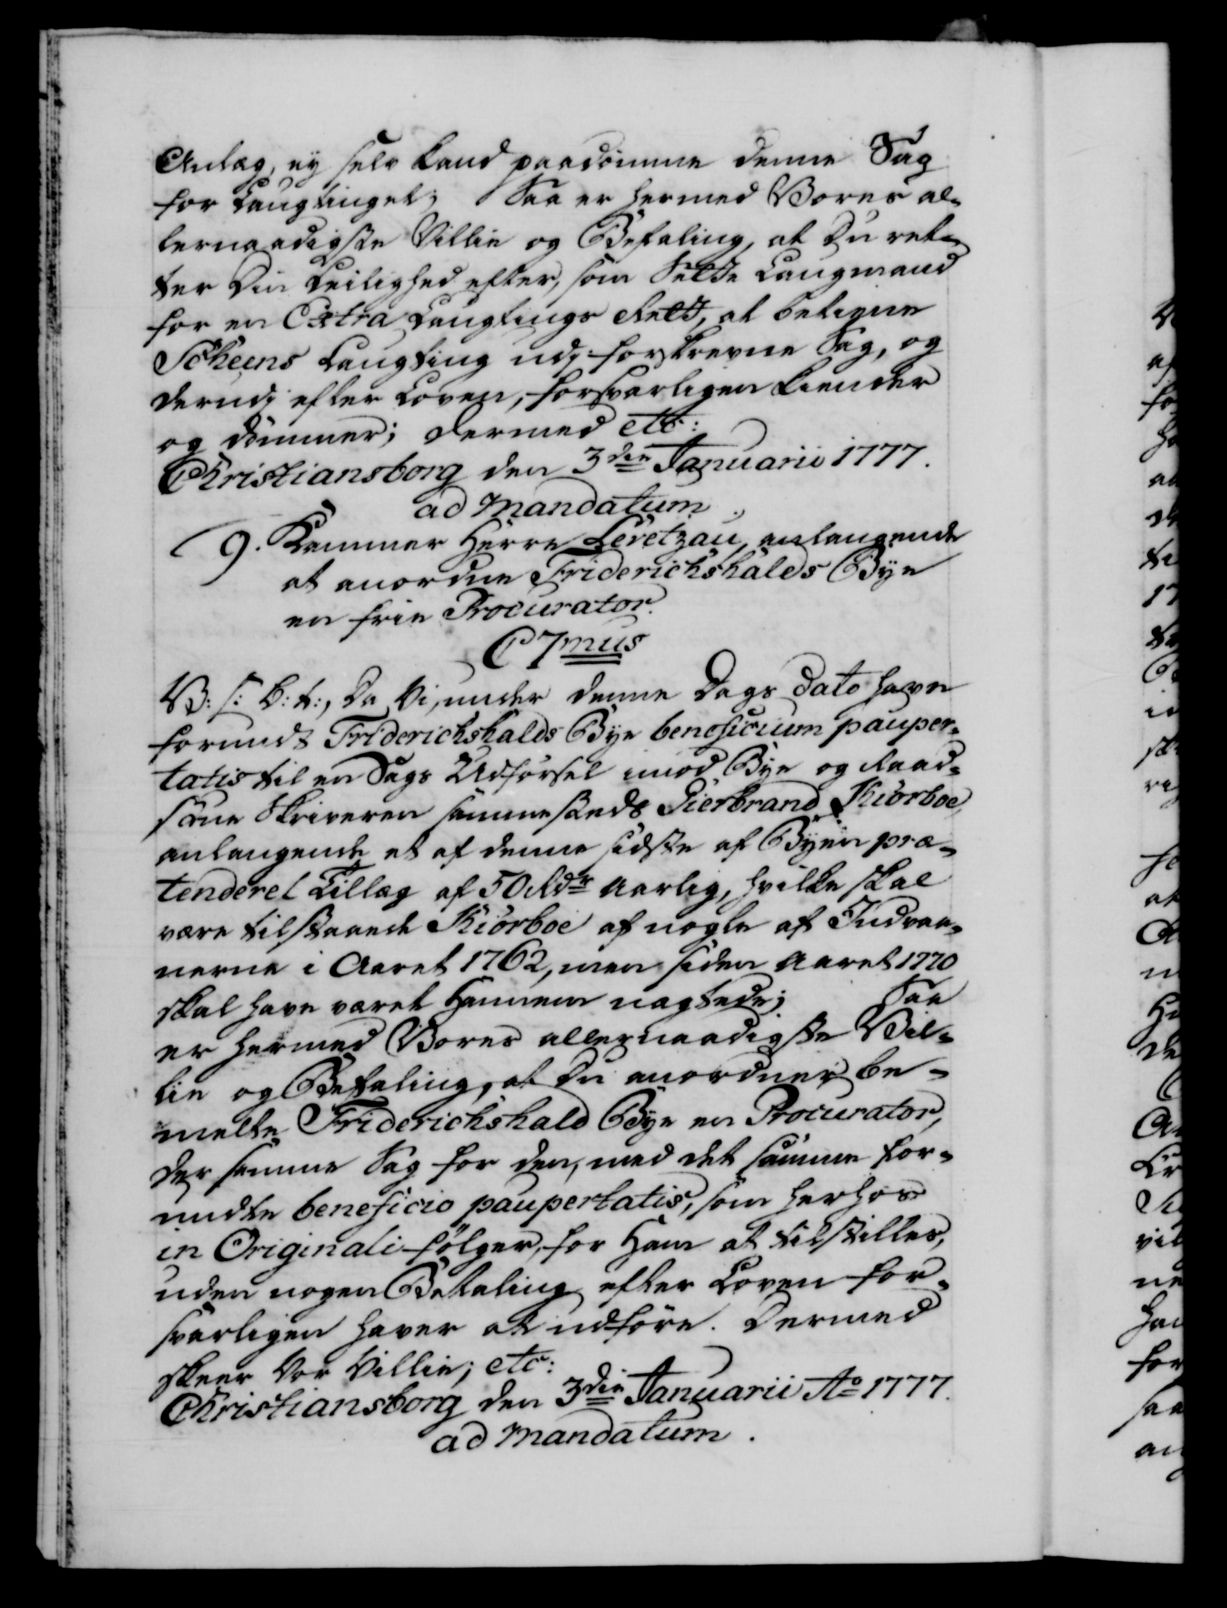 Anlæg, ey selv kand paadömme denne Sag
for Laugtinget; Saa er hermed Vores al-
lernaadigste Villie og Befaling, at Du ret-
ter Din Leilighed efter, som Sette Laugmand
for en Extra Laugtings Rett, at betiene
Scheens Laugting udj forskrevne Sag, og
derudj efter Loven, forsvarligen kiender
og dömmer; Dermed etc:
Christiansborg den 3die Januarii 1777.
ad Mandatum.
9. Kammer Herre Levetzau, anlangende
at anordne Friderichshalds Bye
en frie Procurator.
C7mus
V: s: b: t:, Da Vi, under denne Dags Dato have
forundt Friderichshalds Bye beneficium pauper-
tatis til en Sags Udförsel imod Bye og Raad-
stue Skriveren sammesteds Gierbrand Kiörboe,
anlangende et af denne sidste af Byen præ-
tenderet Tillæg af 50 Rdr aarlig, hvilke skal
være tilstaaede Kiörboe af nogle af Indvaa-
nerne i Aaret 1762, men siden Aaret 1770
skal have været Hannem nægtede; Saa
er hermed Vores allernaadigste Vil-
lie og Befaling, at Du anordner be-
melte Friderichshald Bye en Procurator,
der samme Sag for den, med det samme for-
undte beneficio paupertatis, som herhos
in Originali fölger, for Ham at tilstilles,
uden nogen Betaling efter Loven for-
svarligen haver at udföre. Dermed
skeer Vor Villie; etc:
Christiansborg den 3die Januarii Ao 1777.
ad Mandatum.